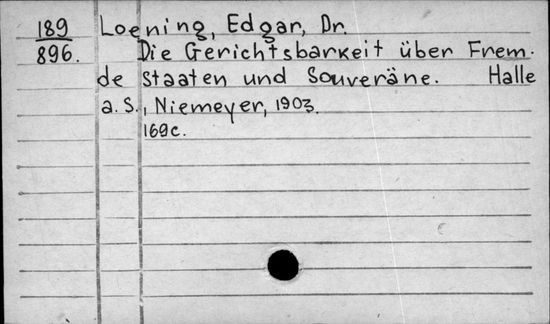 189 Loening, Edgar, Dr.
896. Die Gerichtsbarkeit über Frem-
de Staaten und Souveräne. Halle
a. S., Niemeyer, 1903.
169c.